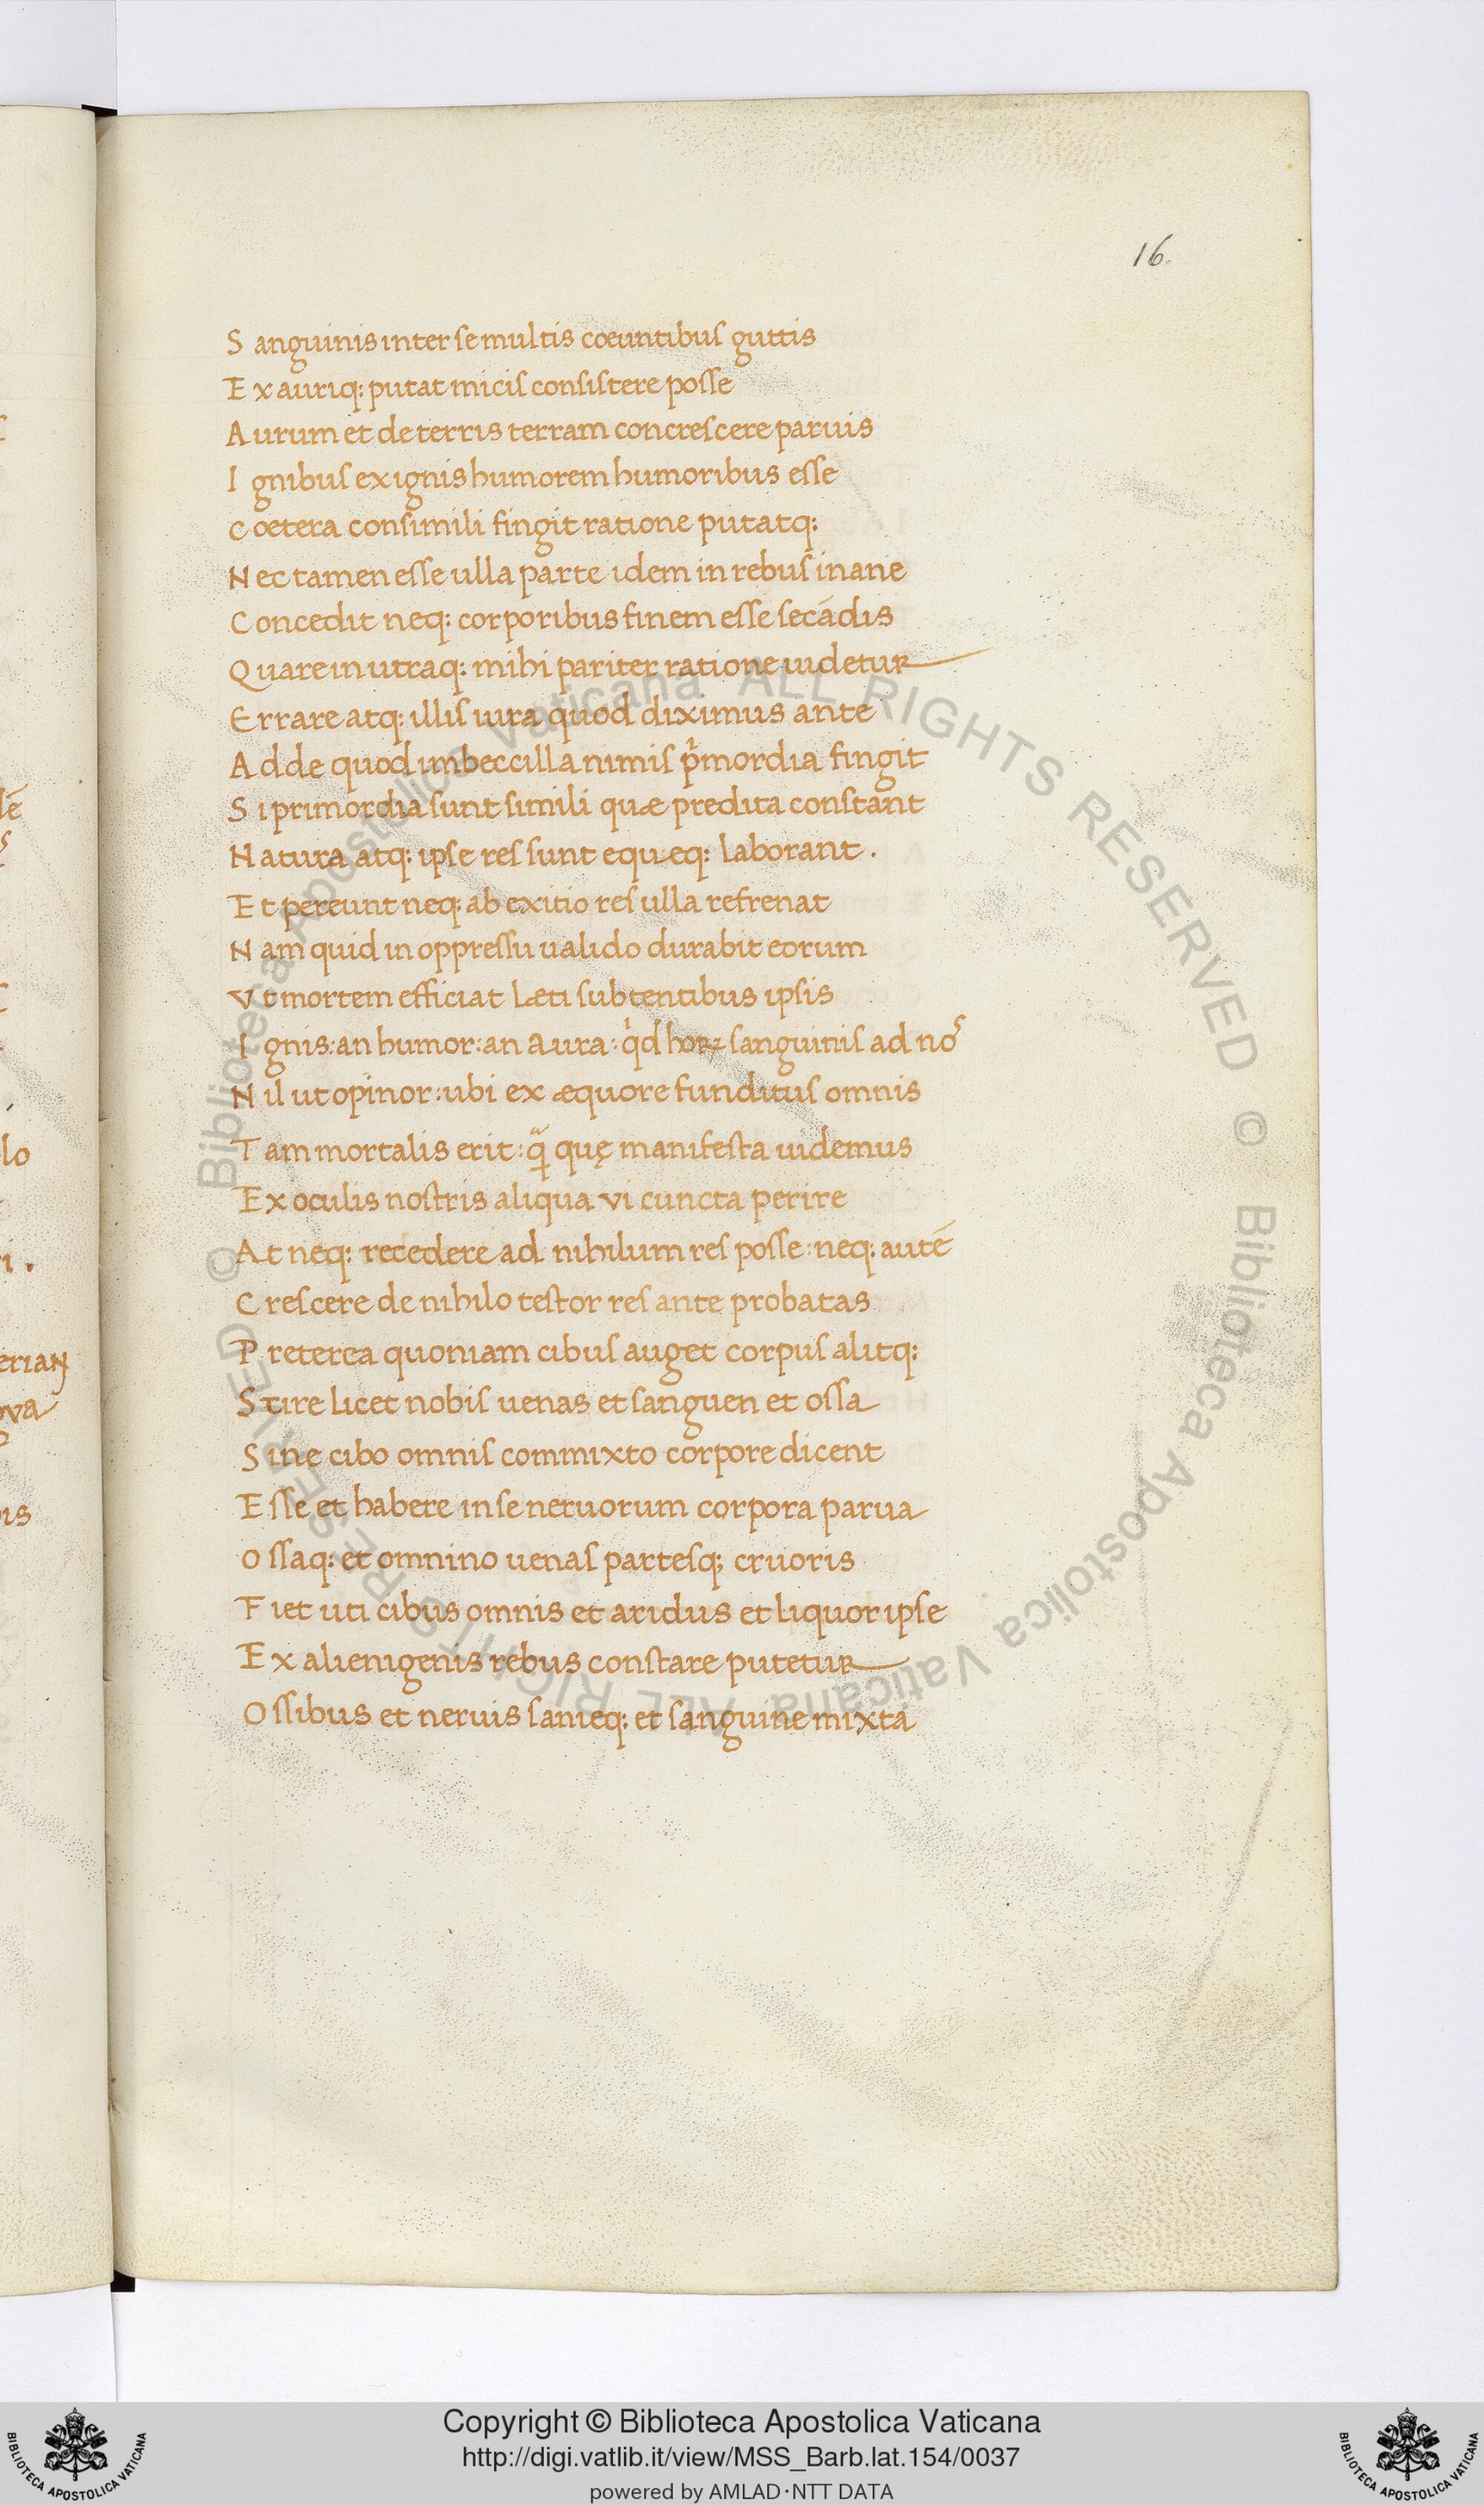 16.
Sanguinis inter se multis coeuntibus guttis
Ex auriq: putat micis consistere posse
Aurum et de terris terram concrescere paruis
Ignibus ex ignis humorem humoribus esse
Coetera consimili fingit ratione putatq:
Nec tamen esse ulla parte idem in rebus inane
Concedit neq: corporibus finem esse secādis
Quare in utraq: mihi pariter ratione uidetur
Errare atq: illis iura quod diximus ante
Adde quod imbeccilla nimis pͥmordia fingit
Si primordia sunt simili quæ predita constant
Natura atq: ipse res sunt equeq: laborant.
Et pereunt neq: ab exitio res ulla refrenat
Nam quid in oppressu ualido durabit eorum
Vt mortem efficiat Læti sub tentibus ipsis
Ignis: an humor: an aura: qͥd hoꝝ sanguinis ad noˢ
Nil ut opinor: ubi ex æquore funditus omnis
Tam mortalis erit: qᷓ quę manifesta uidemus
Ex oculis nostris aliqua vi cuncta perire
At neq: recedere ad nihilum res posse: neq: autē
Crescere de nihilo testor res ante probatas
Preterea quoniam cibus auget corpus alitq:
Scire licet nobis uenas et sanguen et ossa
Sine cibo omnis commixto corpore dicent
Esse et habere in se neruorum corpora parua
Ossaq: et omnino uenas partesq; cruoris
Fiet uti cibus omnis et aridus et liquor ipse
Ex alienigenis rebus constare putetur
Ossibus et neruis sanieq: et sanguine mixta
© Biblioteca Apostolica Vaticana ALL RIGHTS RESERVED
© Biblioteca Apostolica Vaticana ALL RIGHTS RESERVED
Copyright © Biblioteca Apostolica Vaticana
http://digi.vatlib.it/view/MSS_Barb.lat.154/0037
powered by AMLAD·NTT DATA
BIBLIOTECA APOSTOLICA VATICANA
BIBLIOTECA APOSTOLICA VATICANA